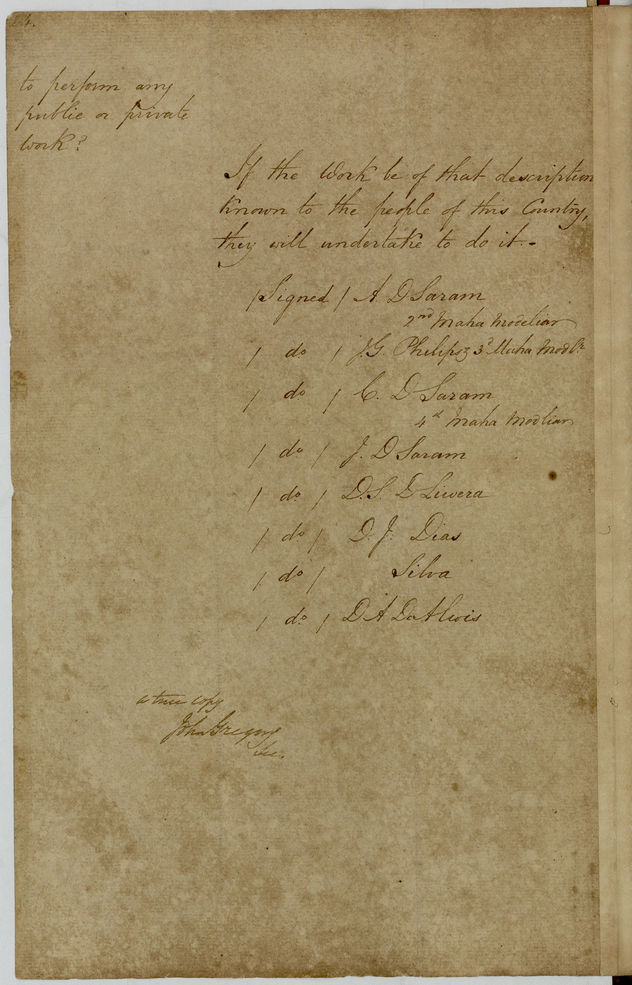 to perform any
public or private
work?
If the Work be of that description
known to the people of this Country,
they will undertake to do it.-
/Signed / A. D Saram
2nd Maha Modeliar
/ do / J. G. Philipsz 3d Maha Modlr
/ do / C. D Saram
4th Maha Modliar
/ do / J. D Saram
/ do / D. S. D Liwera
/ do / D. J. Dias
/ do / Silva
/ do / D A D Alwis
a true copy
John Gregory